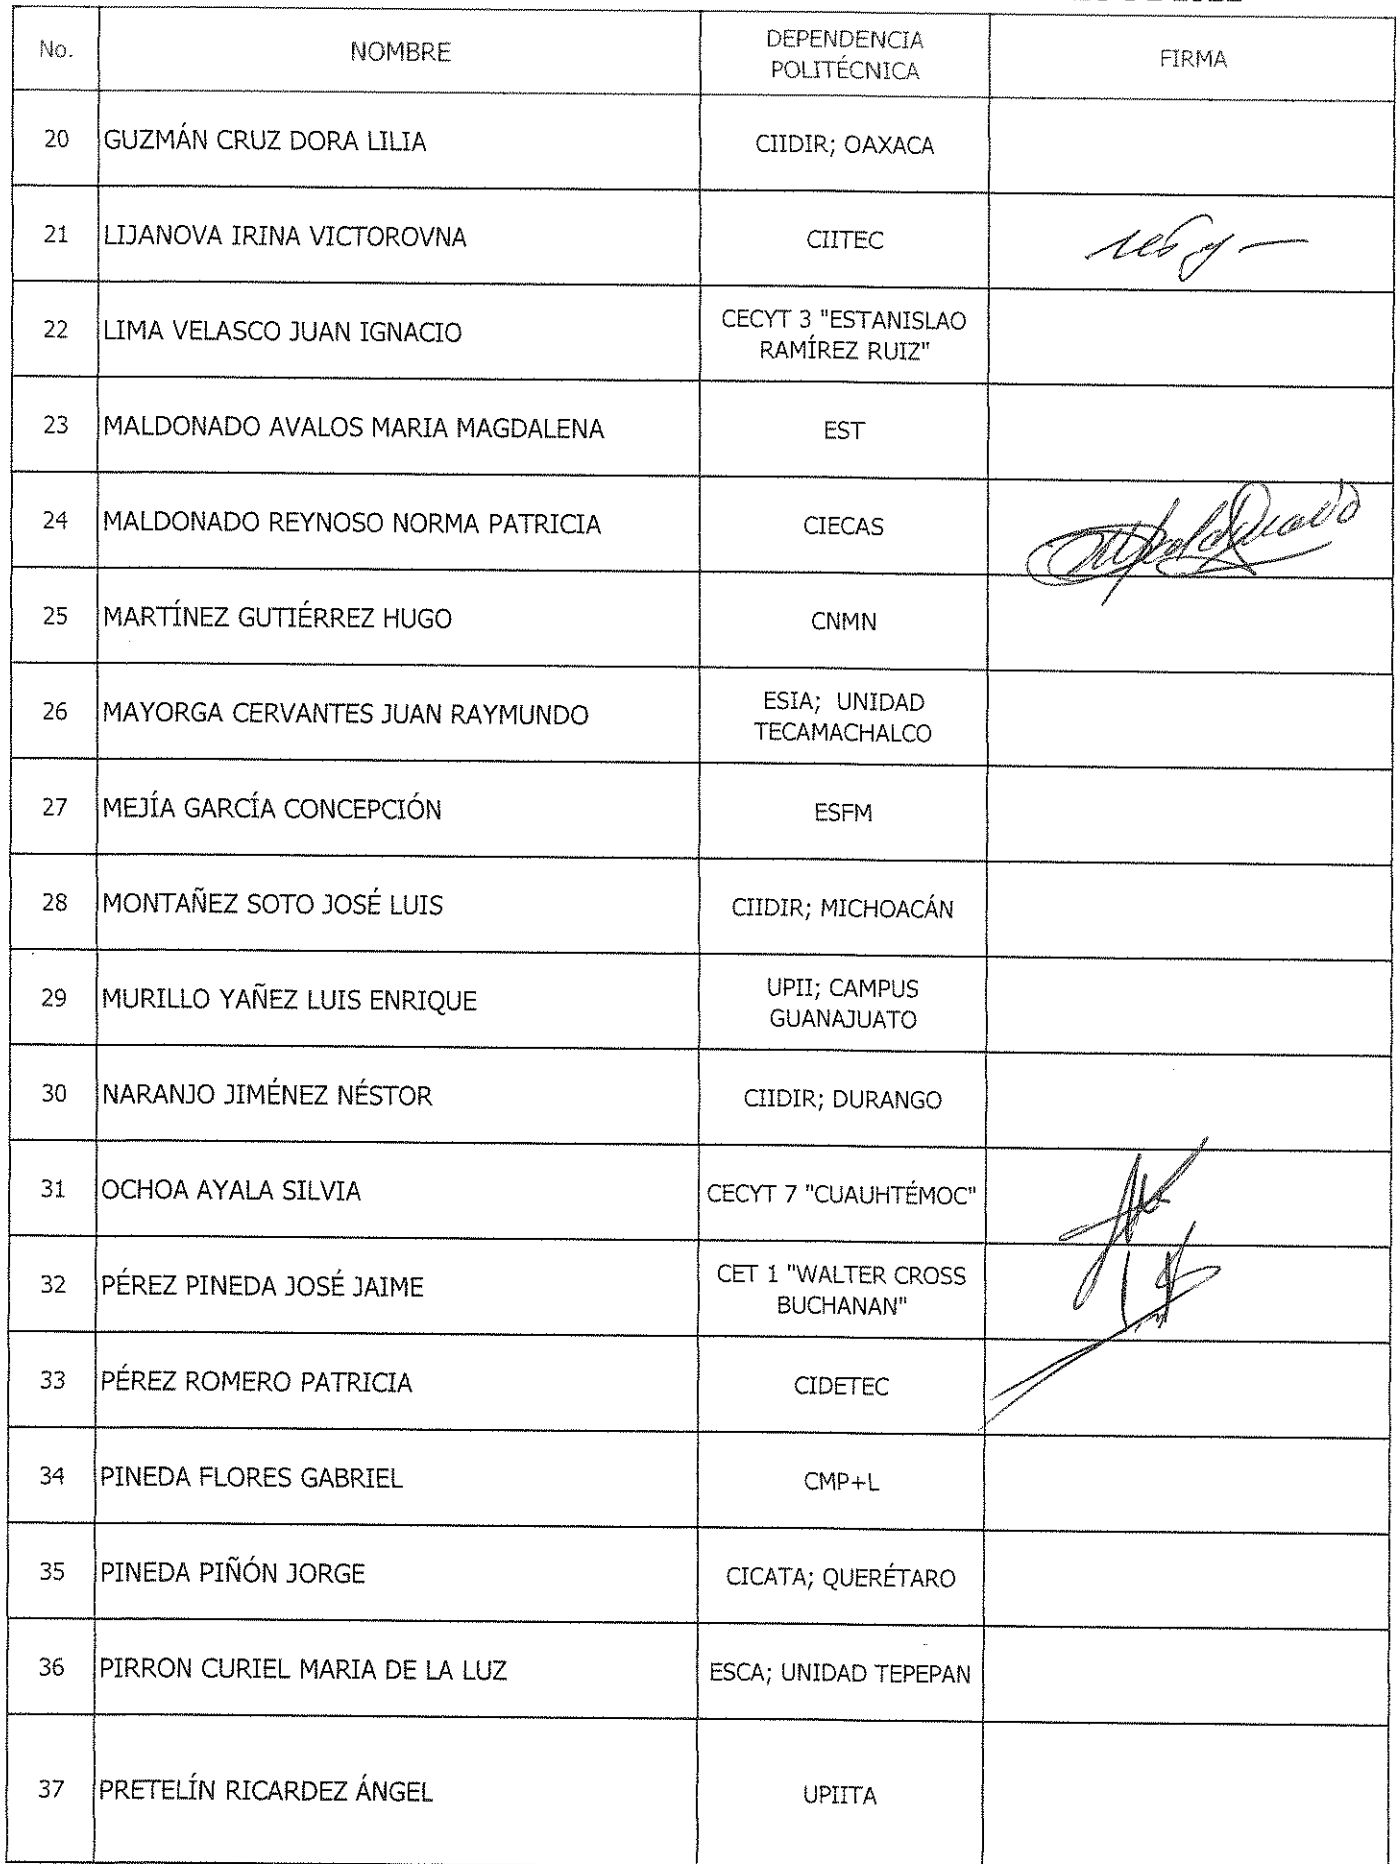 No.
NOMBRE
DEPENDENCIA
POLITÉCNICA
FIRMA
20
GUZMÁN CRUZ DORA LILIA
CIIDIR; OAXACA
21
LIJANOVA IRINA VICTOROVNA
CIITEC
22
LIMA VELASCO JUAN IGNACIO
CECYT 3 "ESTANISLAO
RAMÍREZ RUIZ"
23
MALDONADO AVALOS MARIA MAGDALENA
EST
24
MALDONADO REYNOSO NORMA PATRICIA
CIECAS
25
MARTÍNEZ GUTIÉRREZ HUGO
CNMN
26
MAYORGA CERVANTES JUAN RAYMUNDO
ESIA; UNIDAD
TECAMACHALCO
27
MEJÍA GARCÍA CONCEPCIÓN
ESFM
28
MONTAÑEZ SOTO JOSÉ LUIS
CIIDIR; MICHOACÁN
29
MURILLO YAÑEZ LUIS ENRIQUE
UPII; CAMPUS
GUANAJUATO
30
NARANJO JIMÉNEZ NÉSTOR
CIIDIR; DURANGO
31
OCHOA AYALA SILVIA
CECYT 7 "CUAUHTÉMOC"
32
PÉREZ PINEDA JOSÉ JAIME
CET 1 "WALTER CROSS
BUCHANAN"
33
PÉREZ ROMERO PATRICIA
CIDETEC
34
PINEDA FLORES GABRIEL
CMP+L
35
PINEDA PIÑÓN JORGE
CICATA; QUERÉTARO
36
PIRRON CURIEL MARIA DE LA LUZ
ESCA; UNIDAD TEPEPAN
37
PRETELÍN RICARDEZ ÁNGEL
UPIITA